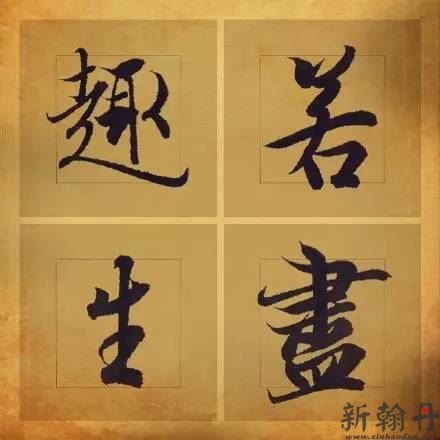 若盡
趣生
新翰丹
www.xinhandan.com